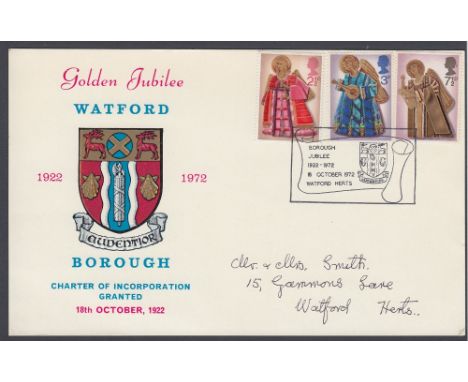 Golden Jubilee
WATFORD
1922 1972
AUDENTIOR
BOROUGH
CHARTER OF INCORPORATION
GRANTED
18th OCTOBER, 1922
2½p 3p 7½p
BOROUGH
JUBILEE
1922 - 1972
18 OCTOBER 1972
WATFORD HERTS
Mr. & Mrs. Smith.
15, Gammons Lane
Watford
Herts.